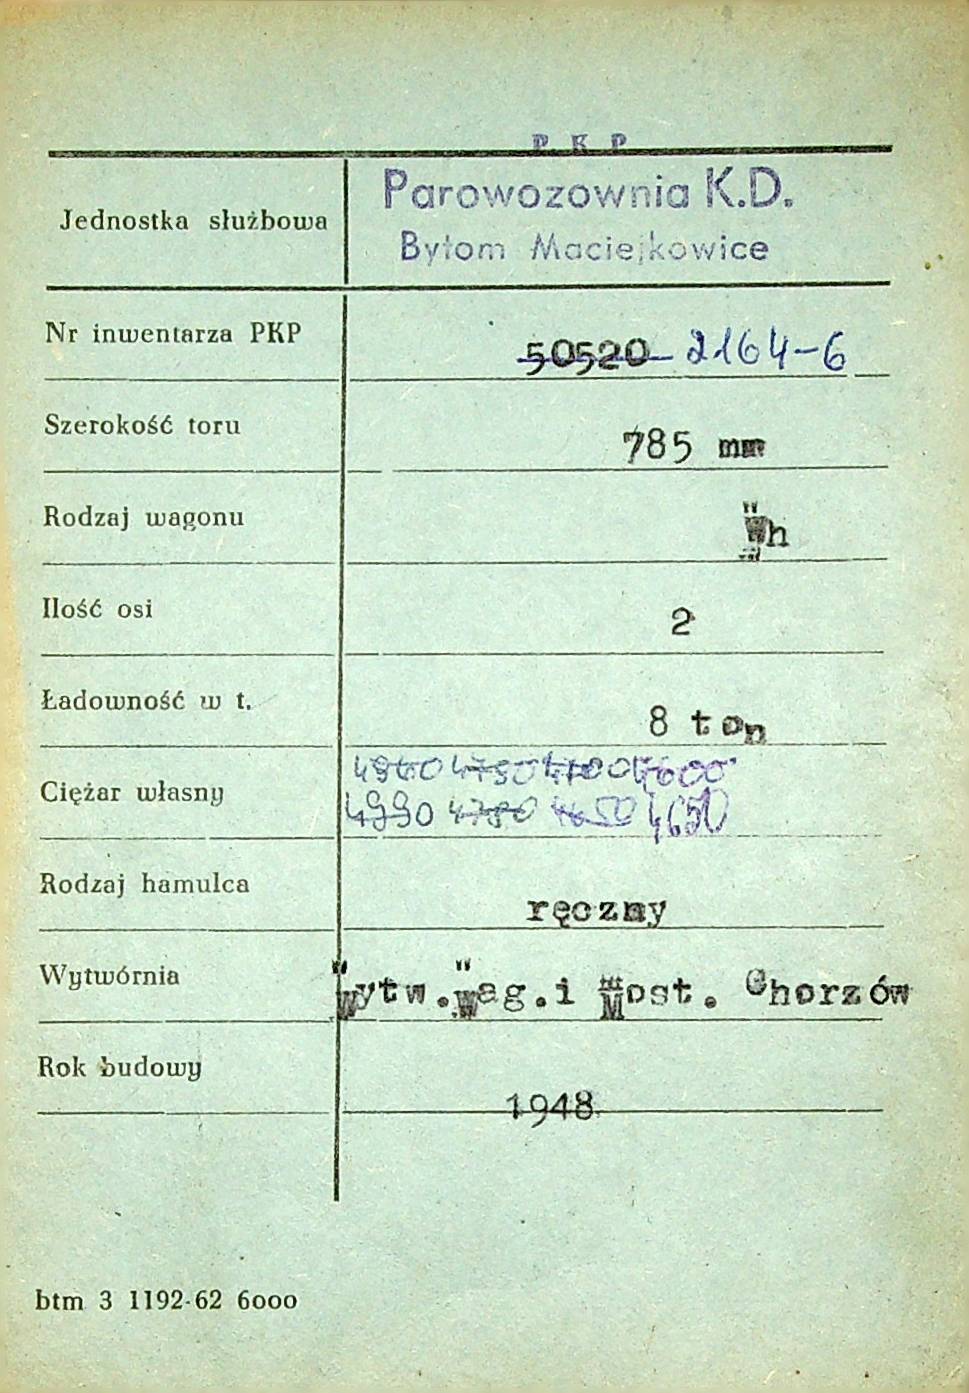 P K P
Jednostka służbowa Parowozownia K.D.
Bytom Maciejkowice
Nr inwentarza PKP 50520 2164-6
Szerokość toru 785 mm
Rodzaj wagonu Wh
Ilość osi 2
Ładowność w t. 8 ton
Ciężar własny 4600
4990 4780 4650 4650
Rodzaj hamulca ręczny
Wytwórnia Wytw.Wag.i Most. Chorzów
Rok budowy 1948
btm 3 1192-62 6000